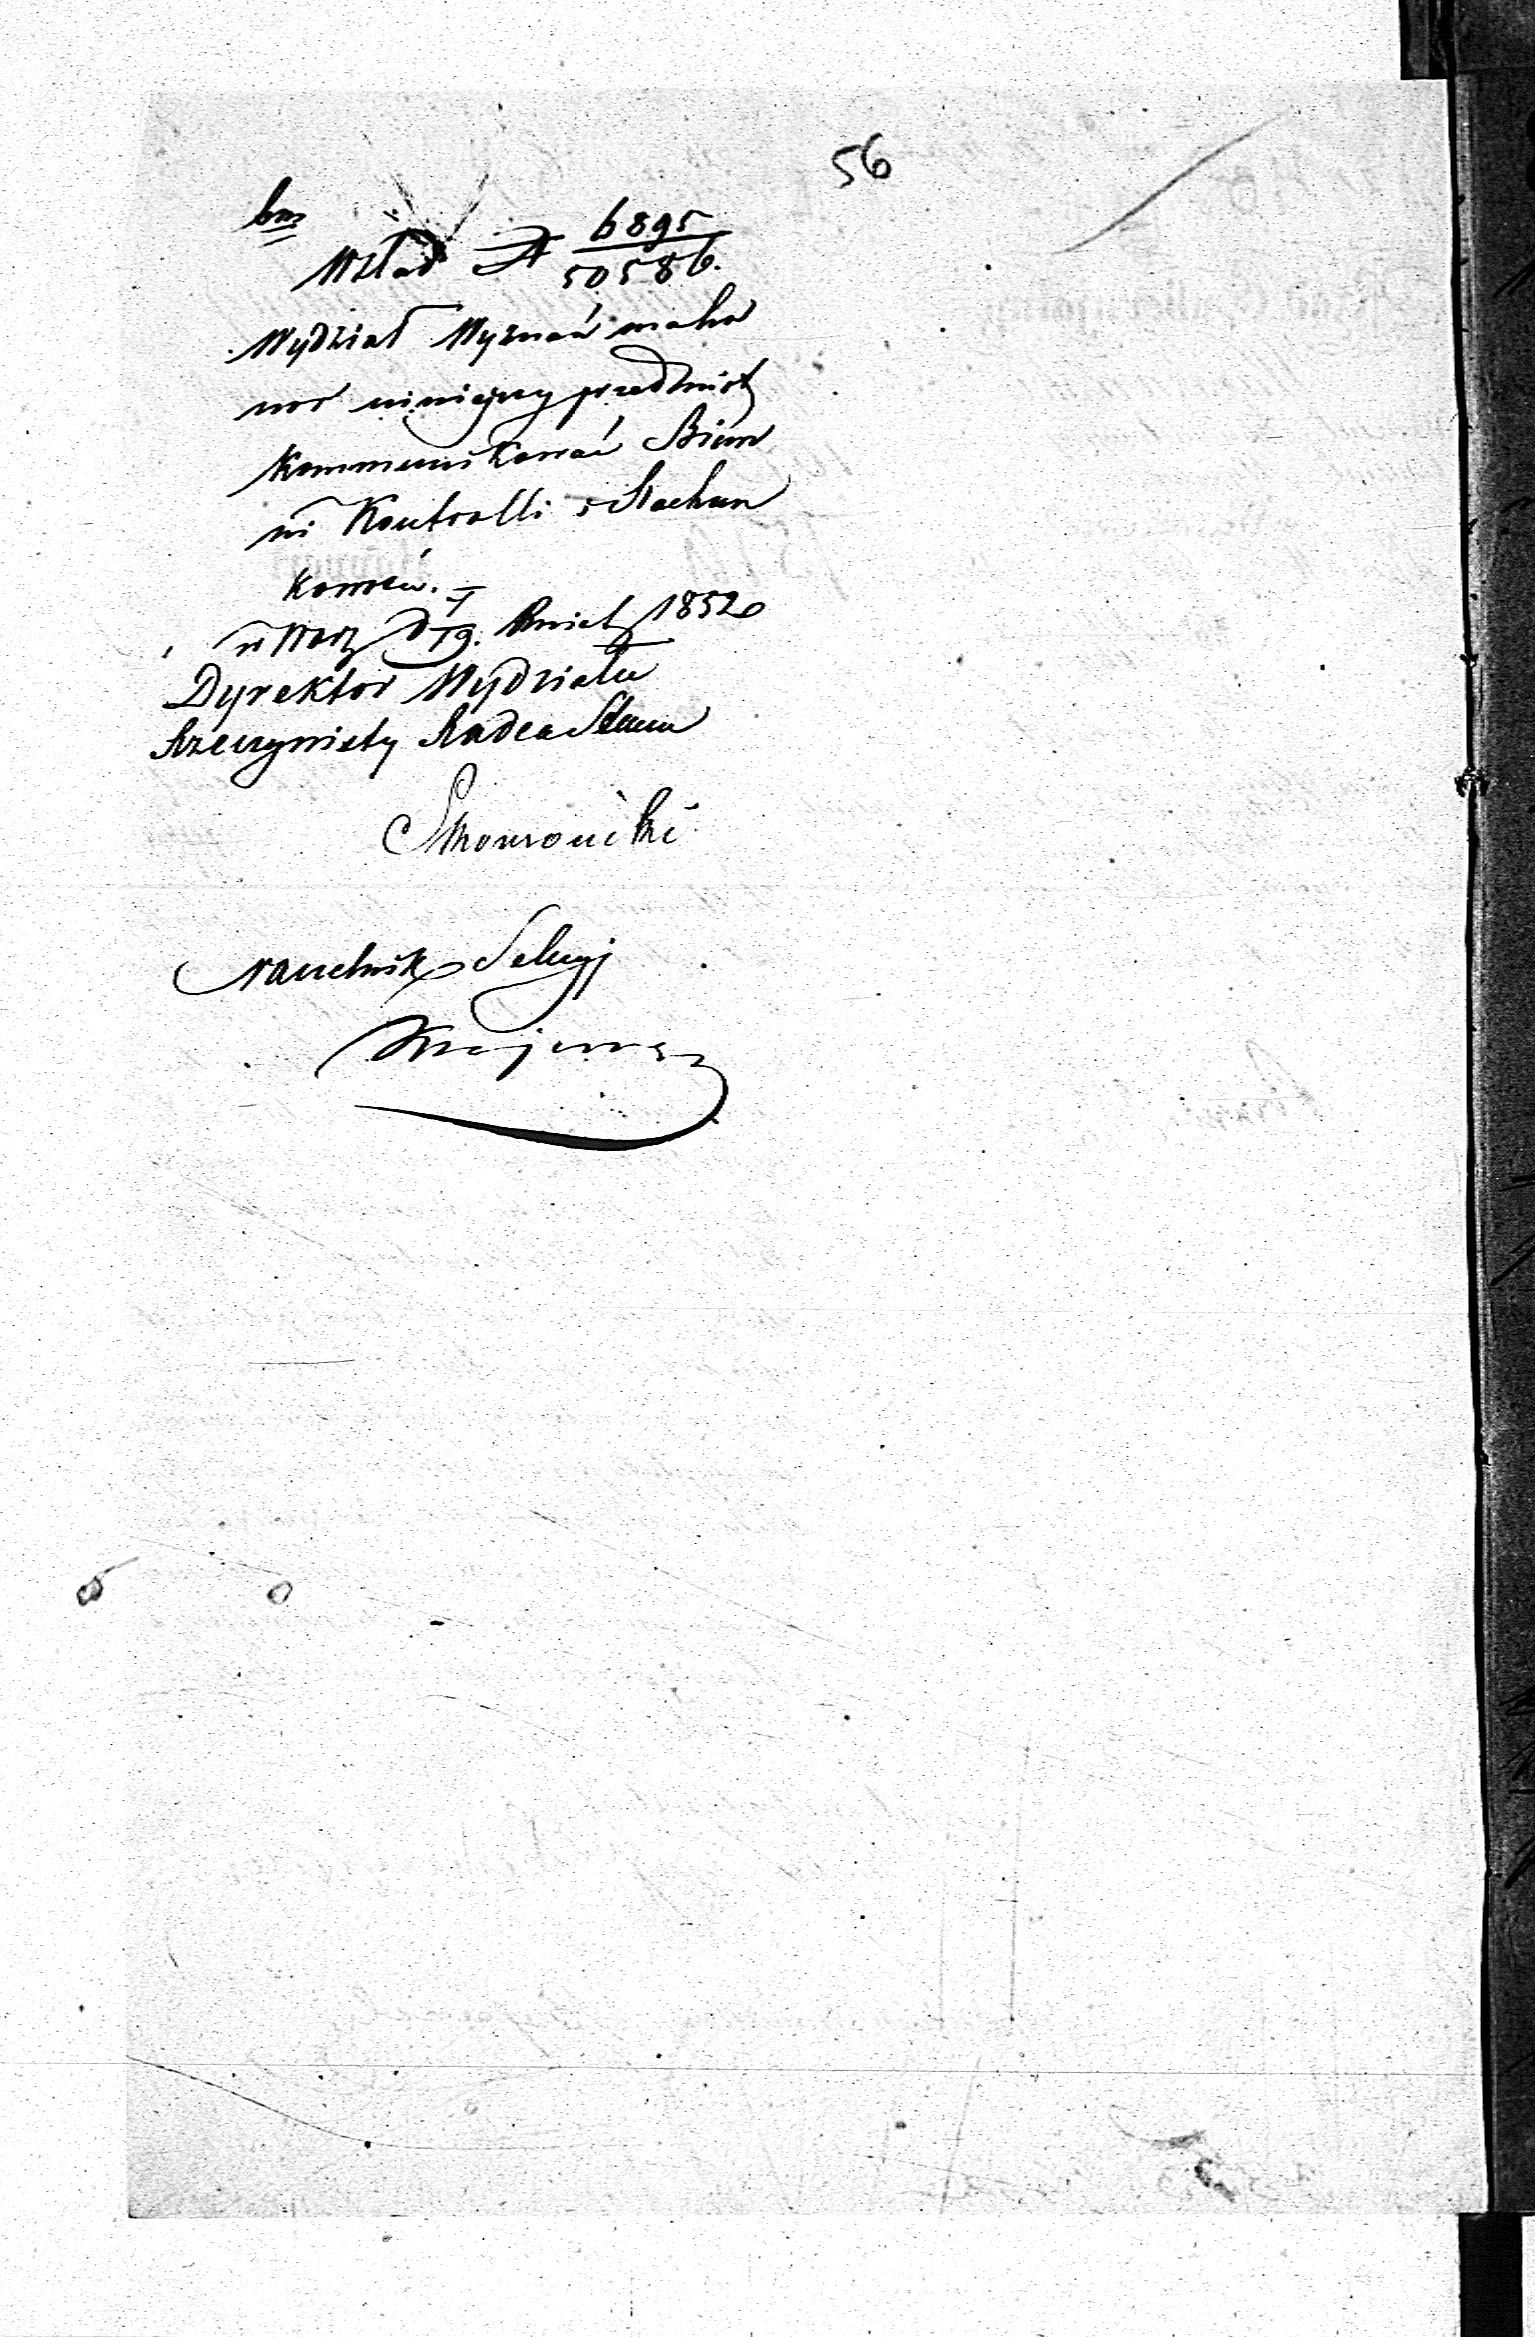 56
bm
Wkład № 6895/50586.
Wydział Wyznań ma ho
nor niniejszy przedmiot
kommunikować Biuru
Kontrolli i Rachun
kowości.
w Warz d 7/19. Kwiet 1852
Dyrektor Wydziału
Rzeczywisty Radca Stanu
Skowroński
Naczelnik Sekcyi